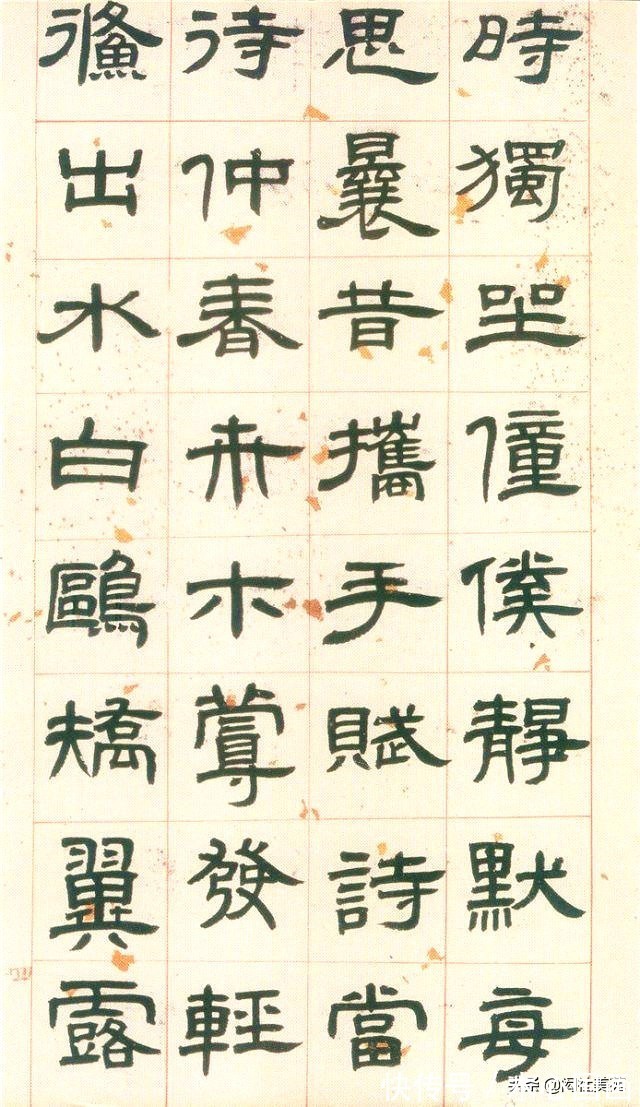 時獨坐僮僕靜默每
思曩昔攜手賦詩當
待仲春卉木蔓發輕
鯈出水白鷗矯翼露
快传号
头条